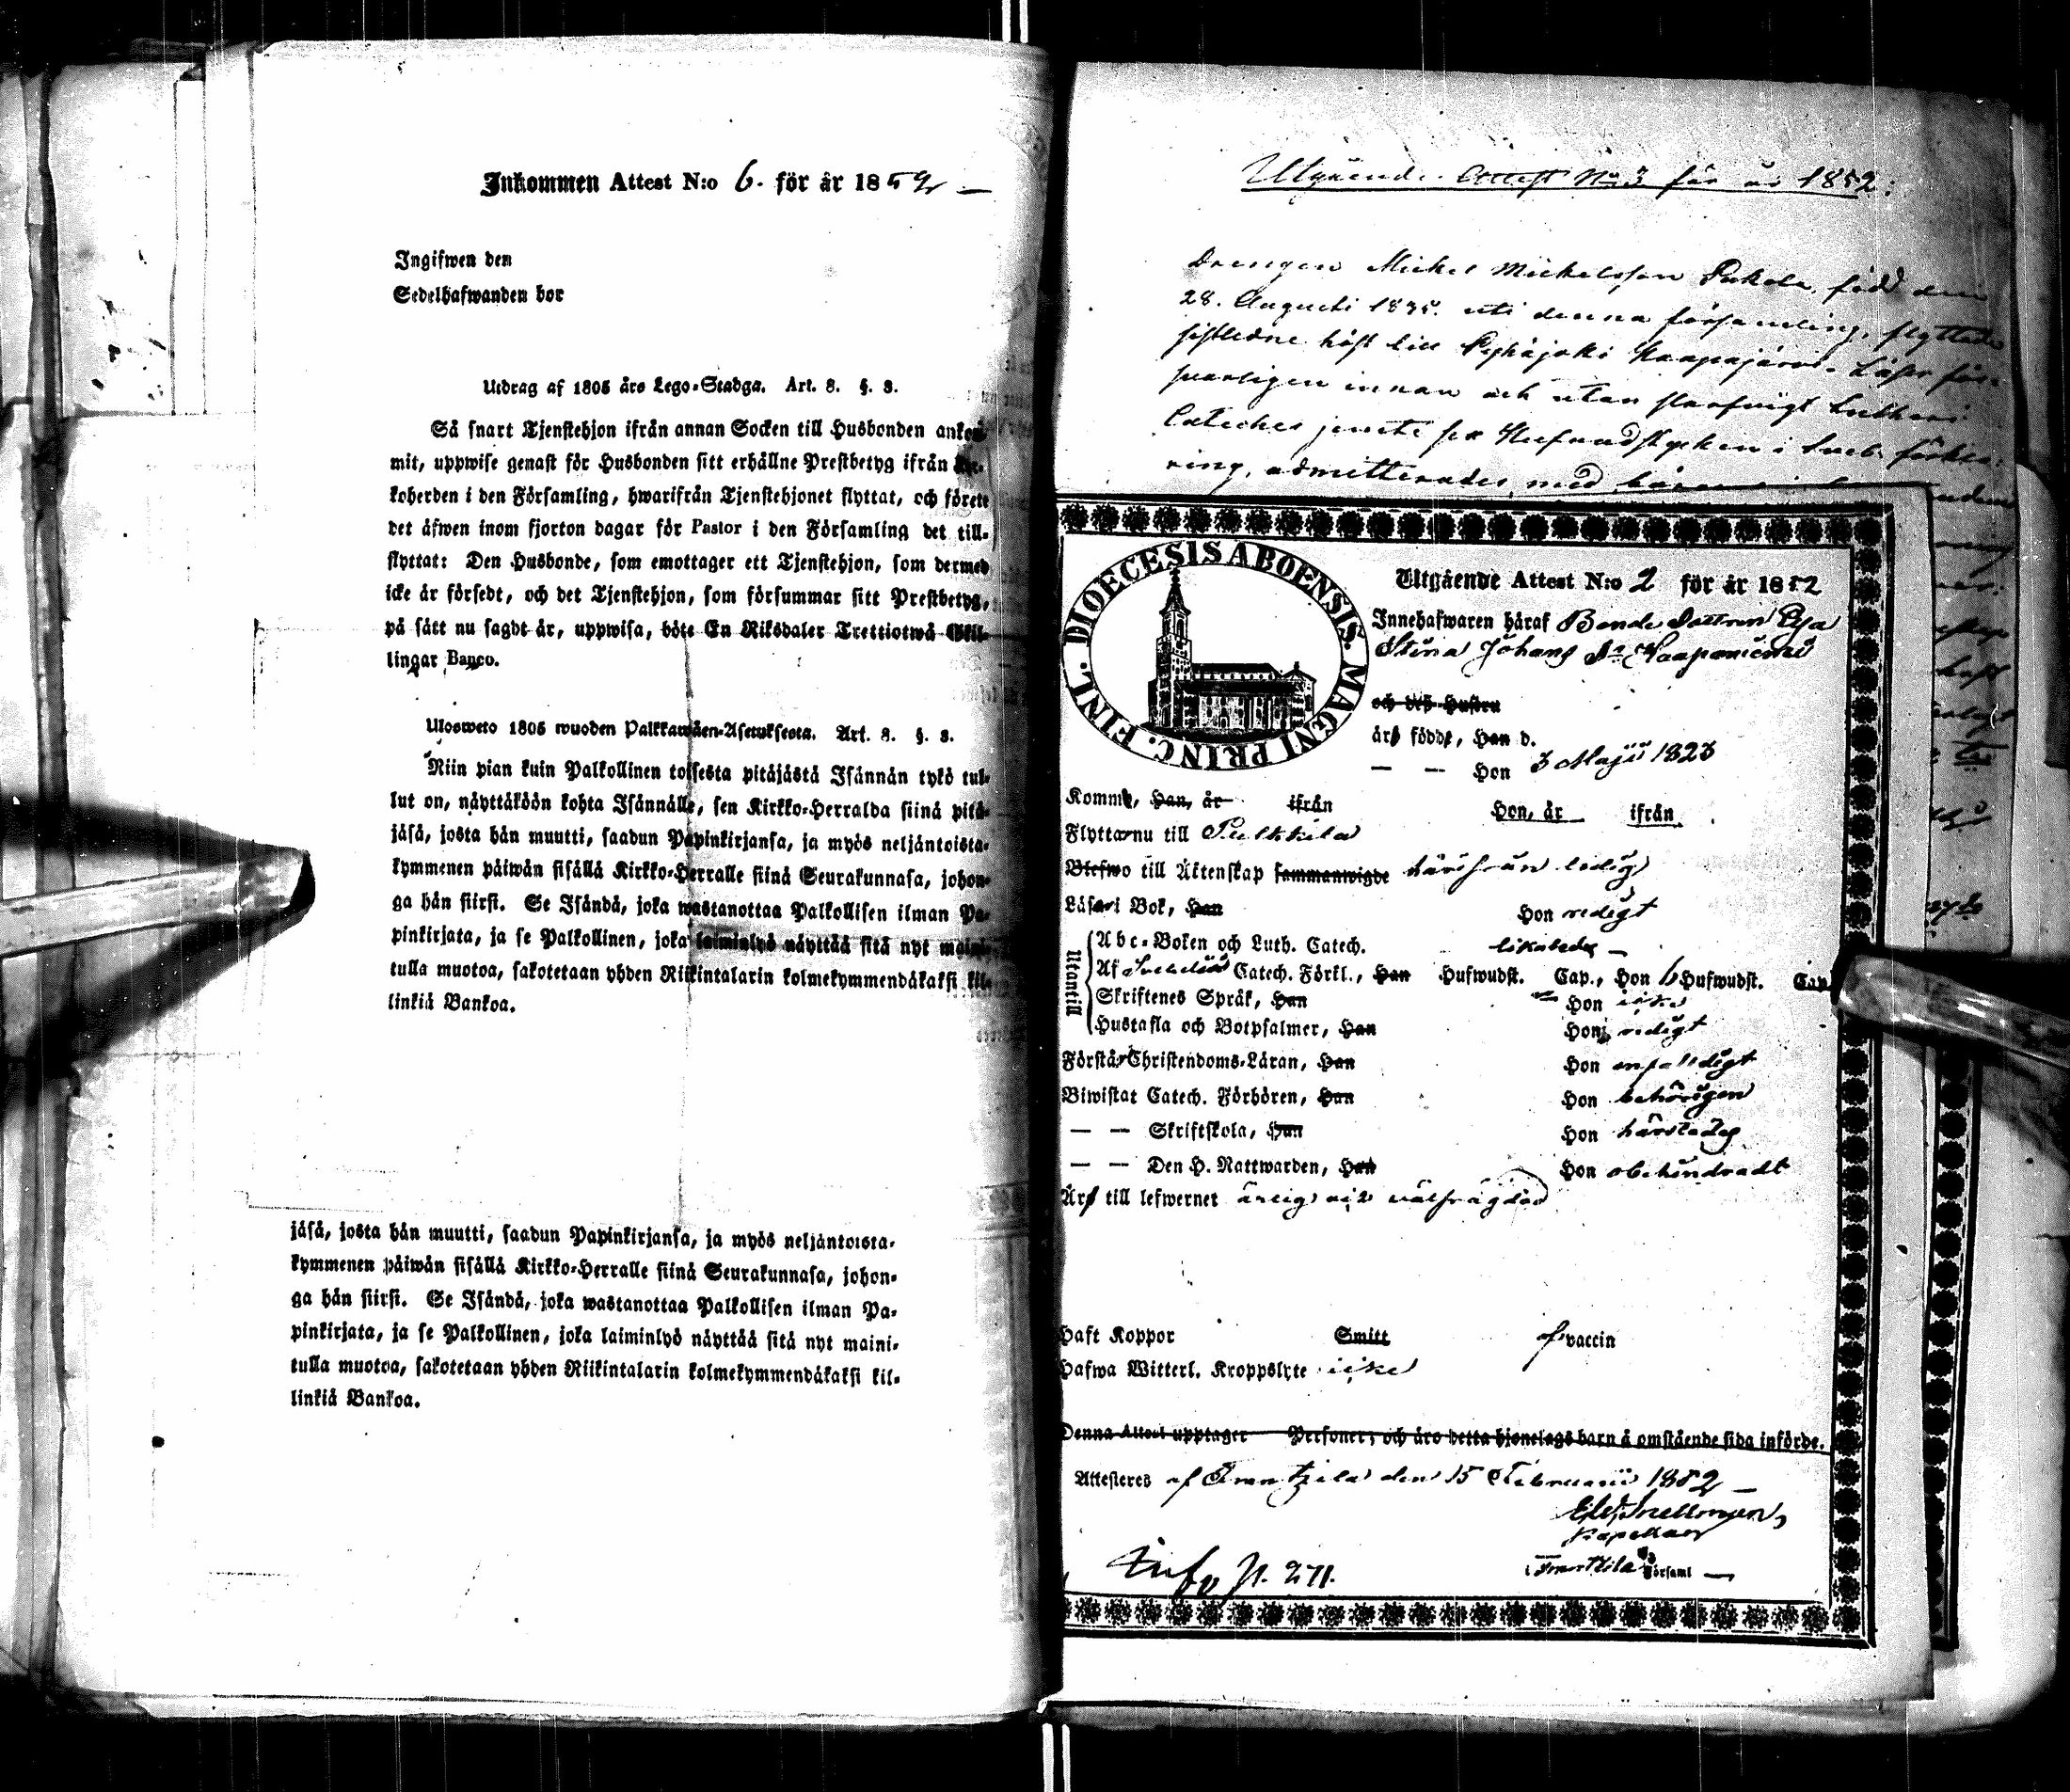 Inkommen Attest N:o 6. för år 1852 —
Ingifwen den
Sedelhafwanden bor
Utdrag af 1805 års Lego-Stadga. Art. 8. §. 8.
Så snart Tjenstehjon ifrån annan Socken till Husbonden ankom-
mit, uppwise genast för Husbonden sitt erhållne Prestbetyg ifrån Kyr-
koherden i den Församling, hwarifrån Tjenstehjonet flyttat, och förete
det äfwen inom fjorton dagar för Pastor i den Församling det till-
flyttat: Den Husbonde, som emottager ett Tjenstehjon, som dermed
icke är försedt, och det Tjenstehjon, som försummar sitt Prestbetyg,
på sätt nu sagdt är, uppwisa, böte En Riksdaler Trettiotwå Skil-
lingar Banco.
Ulosweto 1805 wuoden Palkkawäen-Asetuksesta. Art. 8. §. 8.
Niin pian kuin Palkollinen toisesta pitäjästä Isännän tykö tul-
lut on, näyttäköön kohta Isännälle, sen Kirkko-Herralda siinä pitä-
jäsä, josta hän muutti, saadun Papinkirjansa, ja myös neljäntoista-
kymmenen päiwän sisällä Kirkko-Herralle siinä Seurakunnasa, johon-
ga hän siirsi. Se Isändä, joka wastanottaa Palkollisen ilman Pa-
pinkirjata, ja se Palkollinen, joka laiminlyö näyttää sitä nyt maini-
tulla muotoa, sakotetaan yhden Riikintalarin kolmekymmendäkaksi kil-
linkiä Bankoa.
jäsä, josta hän muutti, saadun Papinkirjansa, ja myös neljäntoista-
kymmenen päiwän sisällä Kirkko-Herralle siinä Seurakunnasa, johon-
ga hän siirsi. Se Isändä, joka wastanottaa Palkollisen ilman Pa-
pinkirjata, ja se Palkollinen, joka laiminlyö näyttää sitä nyt maini-
tulla muotoa, sakotetaan yhden Riikintalarin kolmekymmendäkaksi kil-
linkiä Bankoa.
Utgående Attest No 3 för år 1852:
Drengen Michel Michelsson Pukola, född den
28. Augusti 1835. uti denna församling, flyttade
sistledne höst till Pyhäjoki Haapajärvi. Läser för-
svarligen innan och utan skrefwigt Lutheri
Cateches jemte sex Hufvudstycken i Sveb. förkla-
ring, admitterades med
DIOECESIS ABOENSIS. MAGNI PRINC. FINL.
Utgående Attest N:o 2 för år 1852
Innehafwaren häraf Bonde Dottren Eja
Stina Johans Dr Haapaniemi
och deß Hustru
äro födde, Han d.
— — Hon 3 Maji 1823
Komme, Han, år ifrån Hon, år ifrån
Flytta nu till Pulkkila
Blefwo till Äktenskap sammanwigde härifrån ledig
Läsa i Bok, Han Hon redigt
Utantill
Abc-Boken och Luth. Catech. likaledes —
Af Svebelii Catech. Förkl., Han Hufwudst. Cap., Hon 6 Hufwudst. Cap.
Skriftenes Språk, Han Hon icke
Hustafla och Botpsalmer, Han Hon redigt
Förstår Christendoms-Läran, Han Hon enfalldigt
Biwistat Catech. Förhören, Han Hon behörigen
— — Skriftskola, Han Hon härstädes
— — Den H. Nattwarden, Han Hon obehindradt
Äro till lefwernet ärlig och välfrägdad
Haft Koppor Smitt af vaccin
Hafwa Witterl. Kroppslyte icke
Denna Attest upptager Personer, och äro detta hjonelags barn å omstående sida införde.
Attesteres af Frantzila den 15 Februarii 1852 —
Snellman,
Kapellan
i Frantzila Församl —
p. 271.